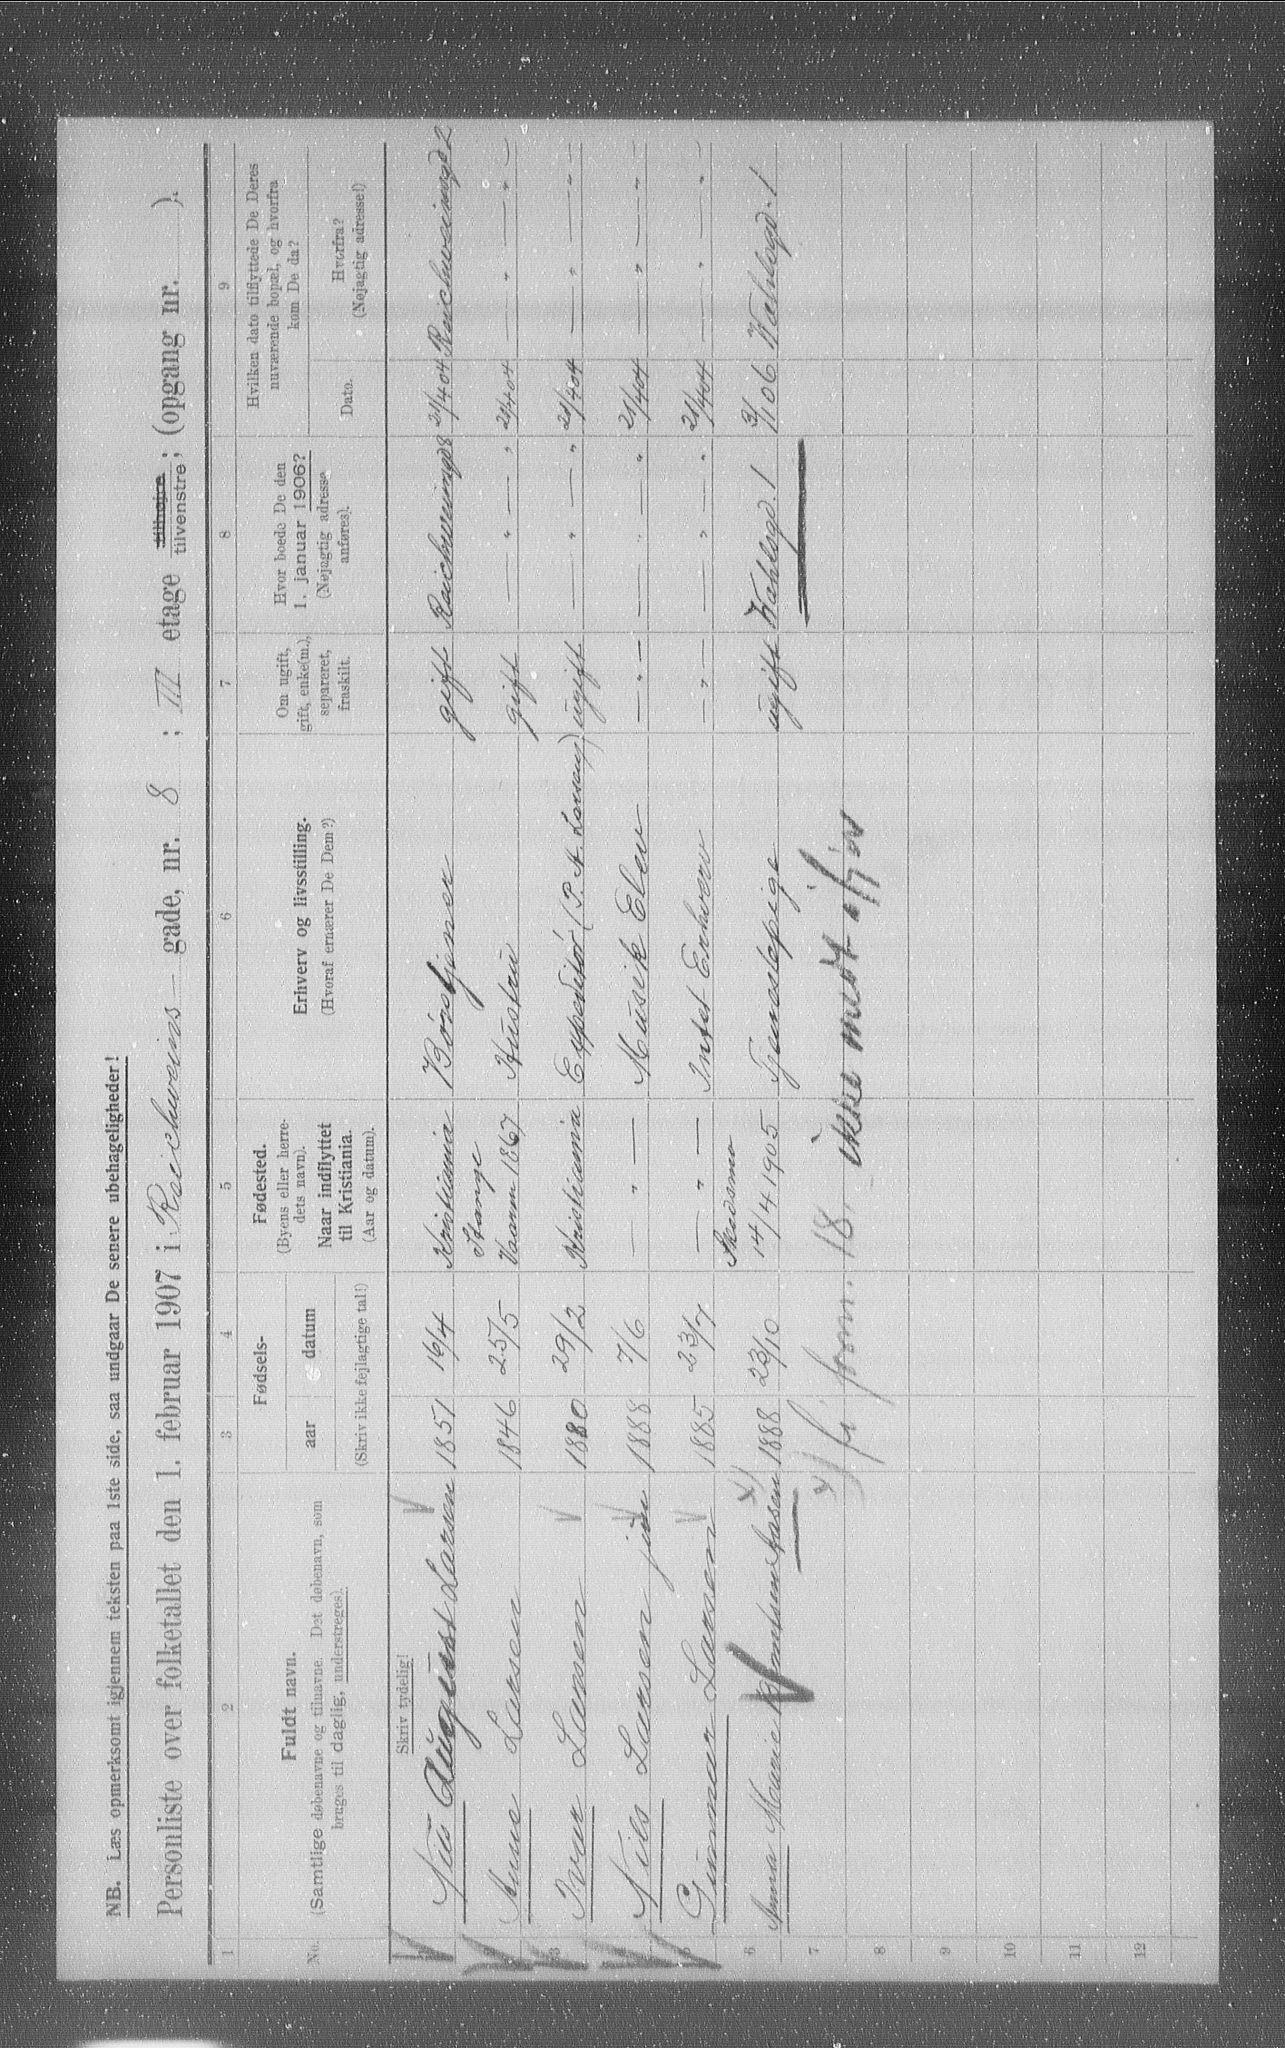 NB. Læs opmerksomt igjennem teksten paa 1ste side, saa undgaar De senere ubehageligheder!
Personliste over folketallet den 1. februar 1907 i Raichweins gade, nr. 8 ; III etage tilhøjre tilvenstre; (opgang nr. ).
1 2 3 4 5 6 7 8 9
No. Fuldt navn. (Samtlige døbenavne og tilnavne. Det døbenavn, som bruges til daglig, understreges).
Fødsels- aar datum (Skriv ikke fejlagtige tal!)
Fødested. (Byens eller herredets navn). Naar indflyttet til Kristiania. (Aar og datum).
Erhverv og livsstilling. (Hvoraf ernærer De Dem?)
Om ugift, gift, enke(m.), separeret, fraskilt.
Hvor boede De den 1. januar 1906? (Nøjagtig adresse anføres).
Hvilken dato tilflyttede De Deres nuværende bopæl, og hvorfra kom De da?
Dato. Hvorfra? (Nøjagtig adresse!)
Skriv tydelig!
1 Nils August Larsen 1851 16/4 Kristiania gift Raichweinsgd 8 21/4 04 Raichweinsgd 2
2 Anne Larsen 1846 25/5 Stange Vaaren 1867 Hustru gift — " — " 21/4 04 — " — " —
3 Ivar Larsen 1880 29/2 Kristiania Expeditør (P. A. Larsens) ugift — " — " 21/4 04 — " — " —
4 Nils Larsen jun 1888 7/6 — " — Musik Elev — " — — " — " 21/4 04 — " — " —
5 Gunnar Larsen 1885 23/7 — " — Intet Erhverv — " — — " — " 21/4 04 — " — " —
6 Anna Marie 1888 23/10 Skedsmo 14/4 1905 Tjenestepige ugift Wahlsgd. 1 3/1 06 Wahlsgd. 1
7 x) fr. form. 18, ikke medt ifjor
8
9
10
11
12